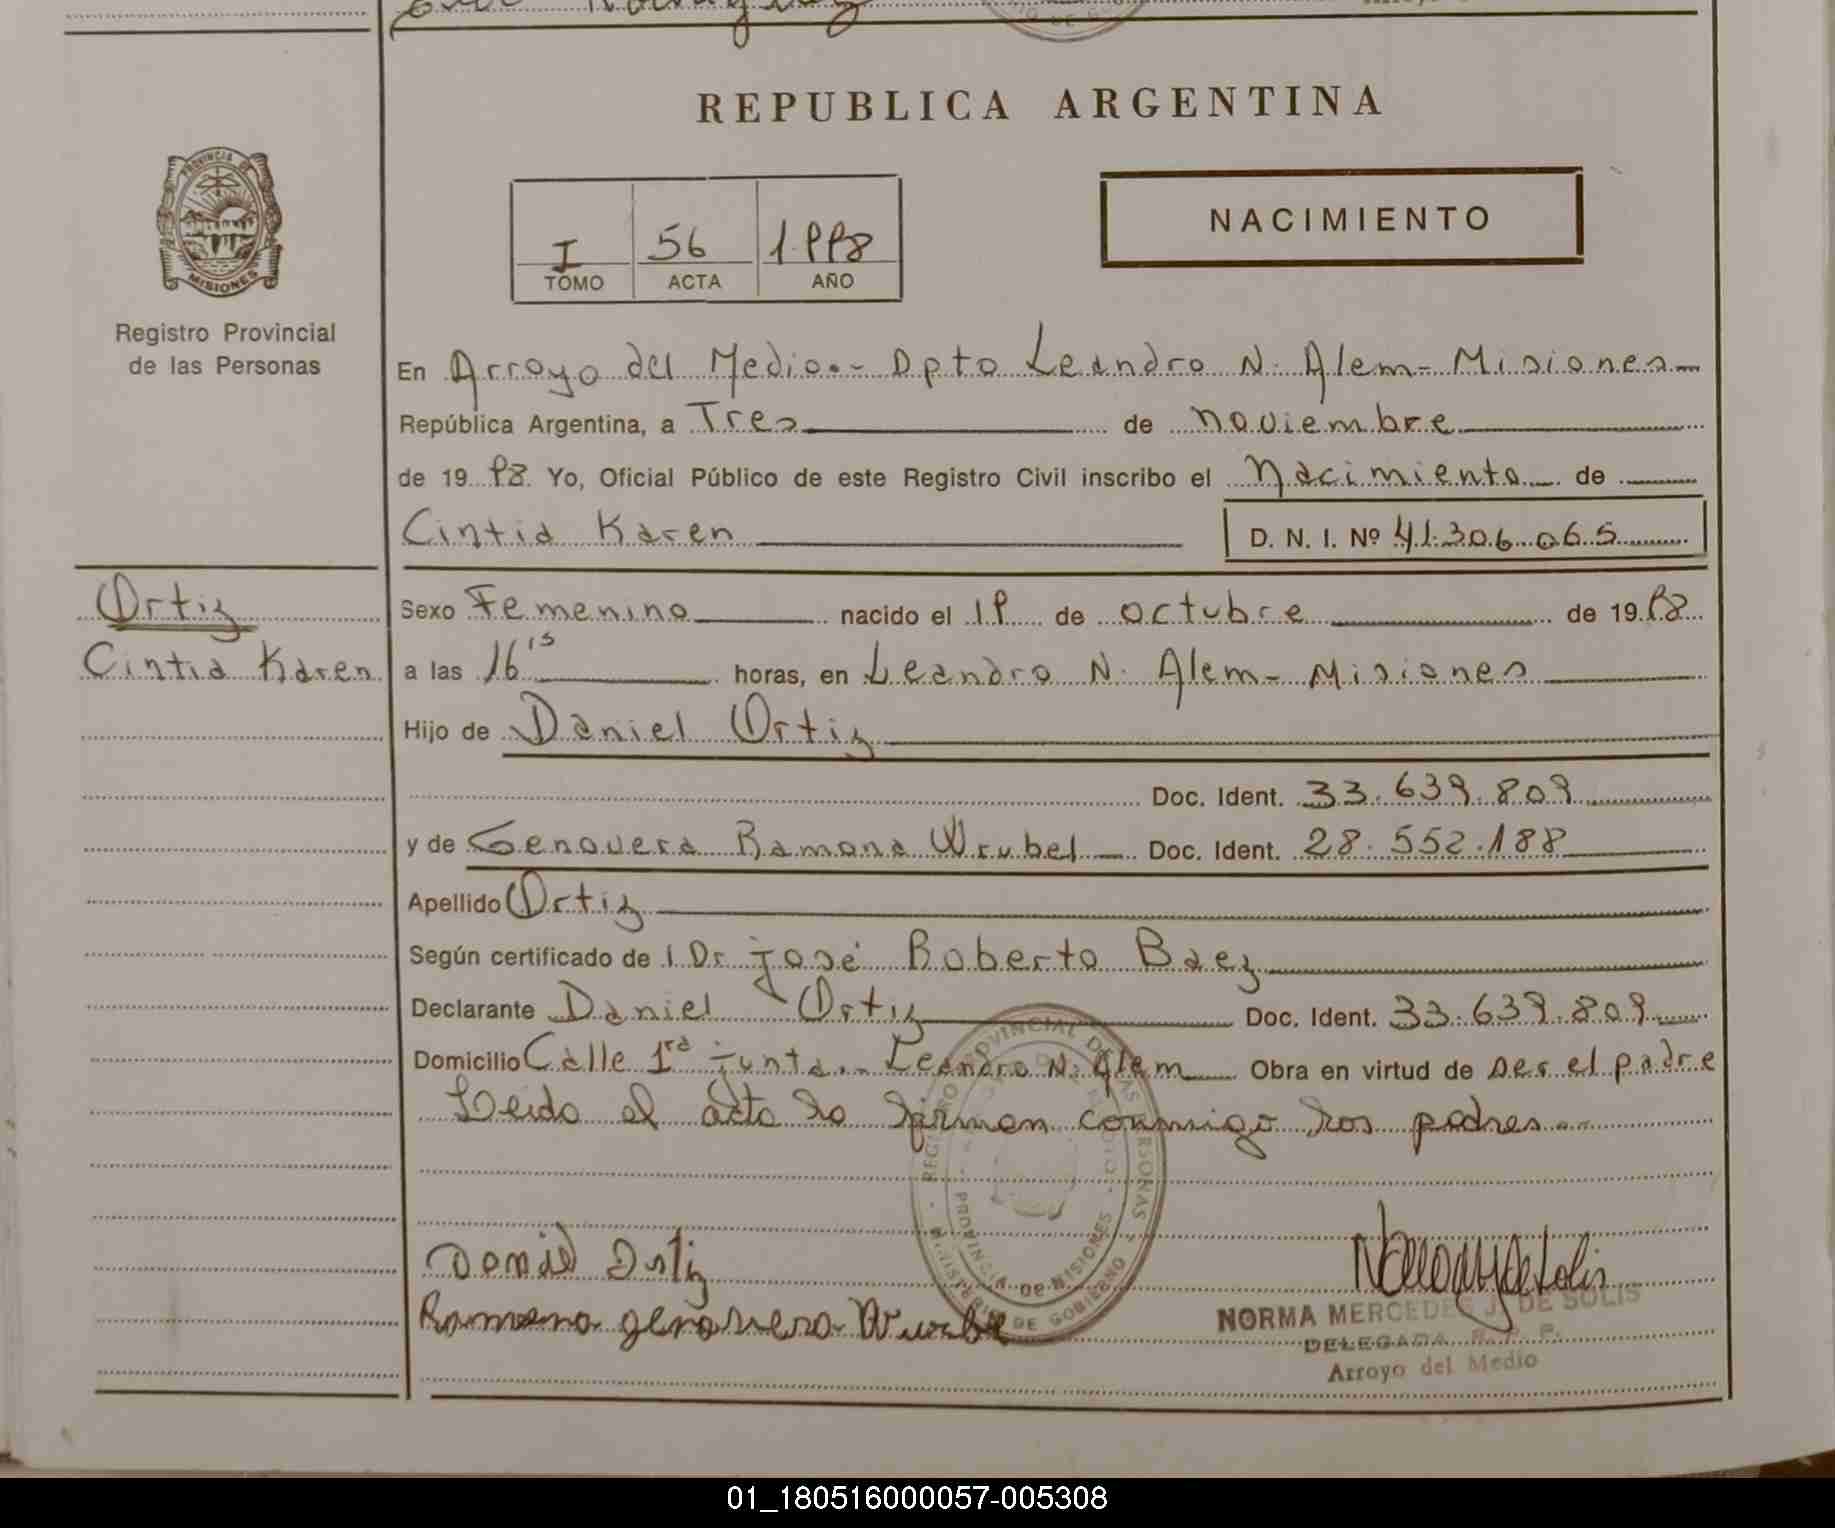 REPUBLICA ARGENTINA
PROVINCIA DE
MISIONES
Registro Provincial
de las Personas
I 56 1998
TOMO ACTA AÑO
NACIMIENTO
En Arroyo del Medio.- Dpto Leandro N. Alem- Misiones-
República Argentina, a Tres de noviembre
de 1998 Yo, Oficial Público de este Registro Civil inscribo el Nacimiento de
Cintia Karen D. N. I. Nº 41.306.065
Ortiz
Cintia Karen
Sexo Femenino nacido el 19 de octubre de 1998
a las 16 15 horas, en Leandro N. Alem- Misiones
Hijo de Daniel Ortiz
Doc. Ident. 33.639.809
y de Genovera Ramona Wrubel Doc. Ident. 28.552.188
Apellido Ortiz
Según certificado de l Dr. josé Roberto Baez
Declarante Daniel Ortiz Doc. Ident. 33.639.809
Domicilio Calle 1ra junta.- Leandro N. Alem Obra en virtud de ser el padre
Leido el acta lo firman conmigo los padres.-
REGISTRO PROVINCIAL DE LAS PERSONAS
MINISTERIO DE GOBIERNO
PROVINCIA DE MISIONES
Daniel Ortiz
Ramona genovera
NORMA MERCEDES J. DE SOLIS
DELEGADA R. P. P.
Arroyo del Medio
01_180516000057-005308